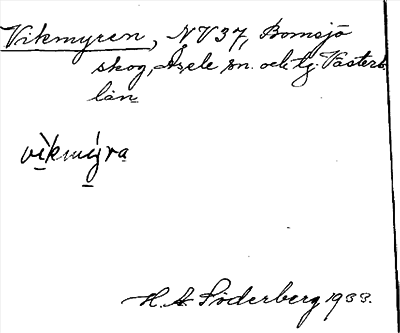 Vikmyren, NV37, Bomsjö
skog, Åsele sn. och tg. Västerb.
län
vìkmýra
H. A. Söderberg 1933.